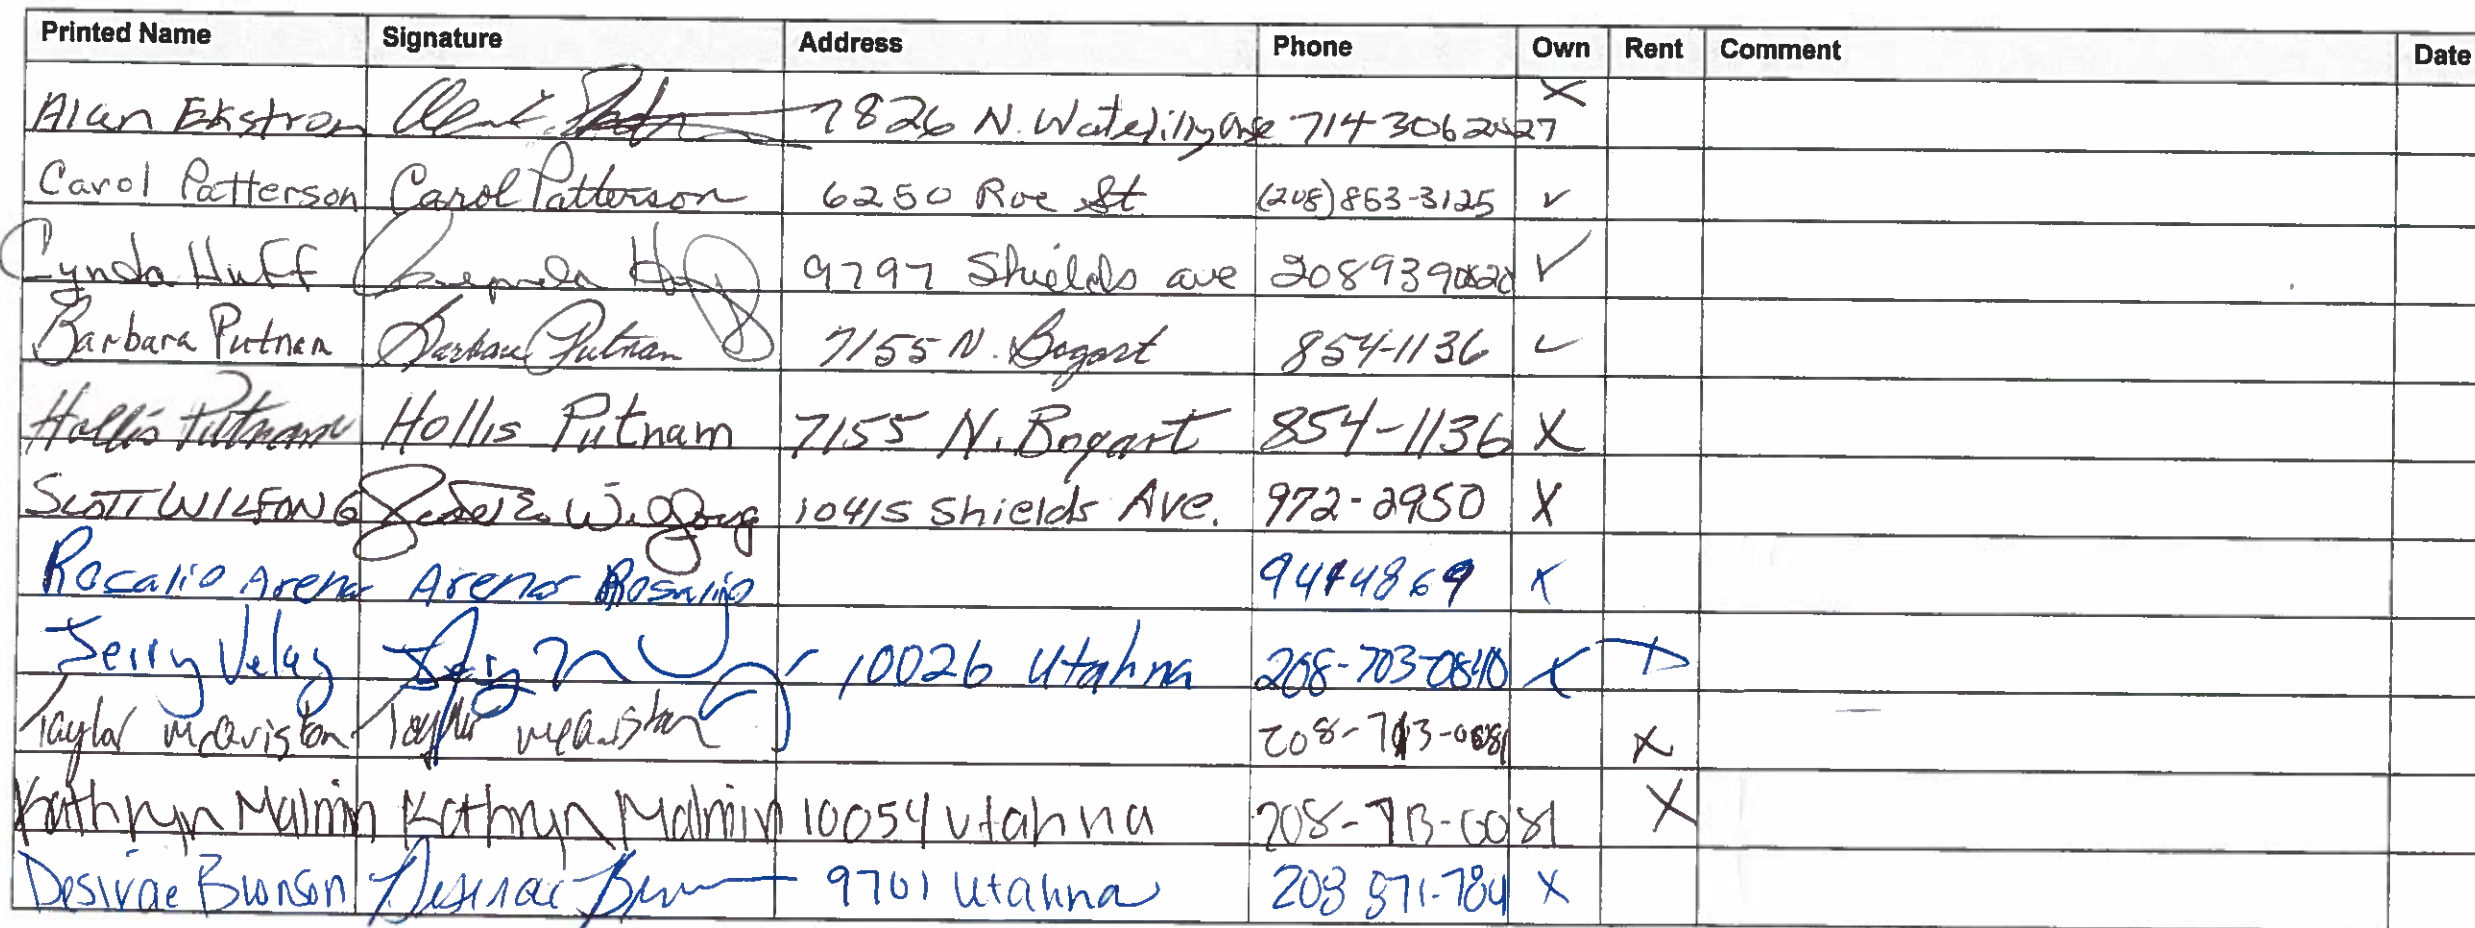 Printed Name Signature Address Phone Own Rent Comment Date
Alan Ekstrom 7826 N. Waterlilly Ave 714 306 X
Carol Patterson Carol Patterson 6250 Roe St (208) 863-3125 ✓
Cynda Huff Huff 9797 Shields ave 208939 ✓
Barbara Putnam Barbara Putnam 7155 N. Bogart 854-1136 ✓
Hollis Putnam Hollis Putnam 7155 N. Bogart 854-1136 X
SCOTT WILFONG 10415 Shields Ave. 972-2950 X
Rosalio Arena Arena Rosalio X
Jerry 10026 Utahna 208-703-0840 X X
Taylor Taylor X
Kathryn Malmin Kathryn Malmin 10054 Utahna 208-713-0081 X
Desirae Bronson Desirae 9701 Utahna 208 871-784 X